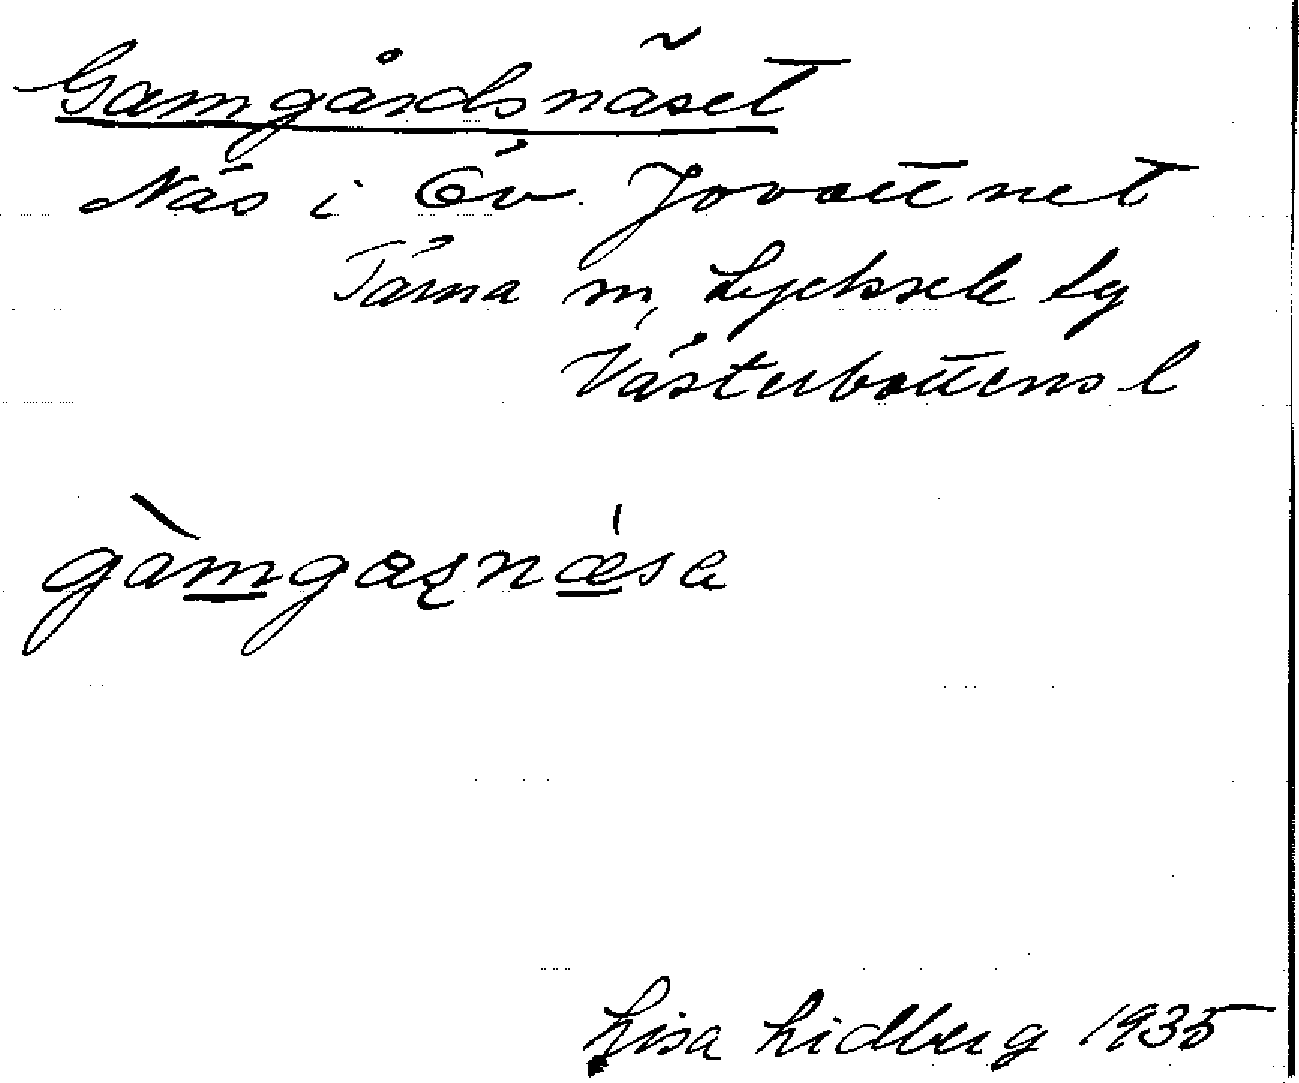 Gamgårdsnäset
Näs i Öv. Jovattnet
Tärna sn, Lycksele Lg
Västerbottens l
gàmgaʂnæ̀sa
Lisa Lidberg 1935